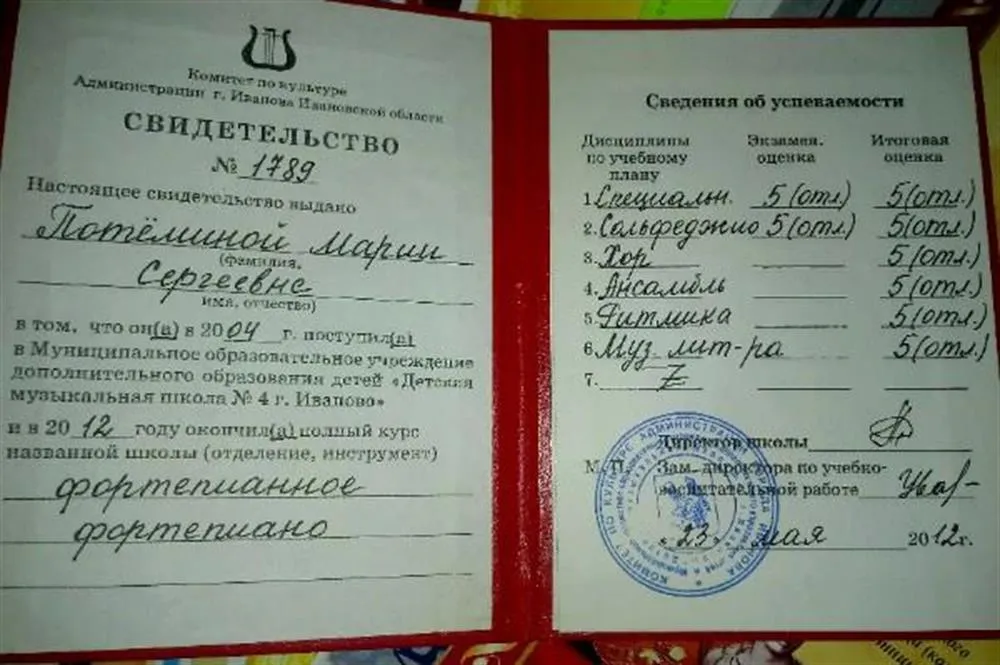 Комитет по культуре
Администрации г. Иванова Ивановской области
СВИДЕТЕЛЬСТВО
№ 1789
Настоящее свидетельство выдано
Потёминой Марии
(фамилия,
Сергеевне
имя, отчество)
в том, что он(а) в 2004 г. поступил(а)
в Муниципальное образовательное учреждение
дополнительного образования детей «Детская
музыкальная школа № 4 г. Иваново»
и в 2012 году окончил(а) полный курс
названной школы (отделение, инструмент)
фортепианное
фортепиано
Сведения об успеваемости
Дисциплины Экзамен. Итоговая
по учебному оценка оценка
плану
1. Специальн. 5 (отл) 5(отл.)
2. Сольфеджио 5 (отл) 5(отл.)
3. Хор 5(отл.)
4. Ансамбль 5(отл.)
5. Ритмика 5(отл.)
6. Муз. лит-ра 5(отл.)
7. Z
Директор школы
М. П. Зам. директора по учебно-
воспитательной работе
« 23 » мая 2012 г.